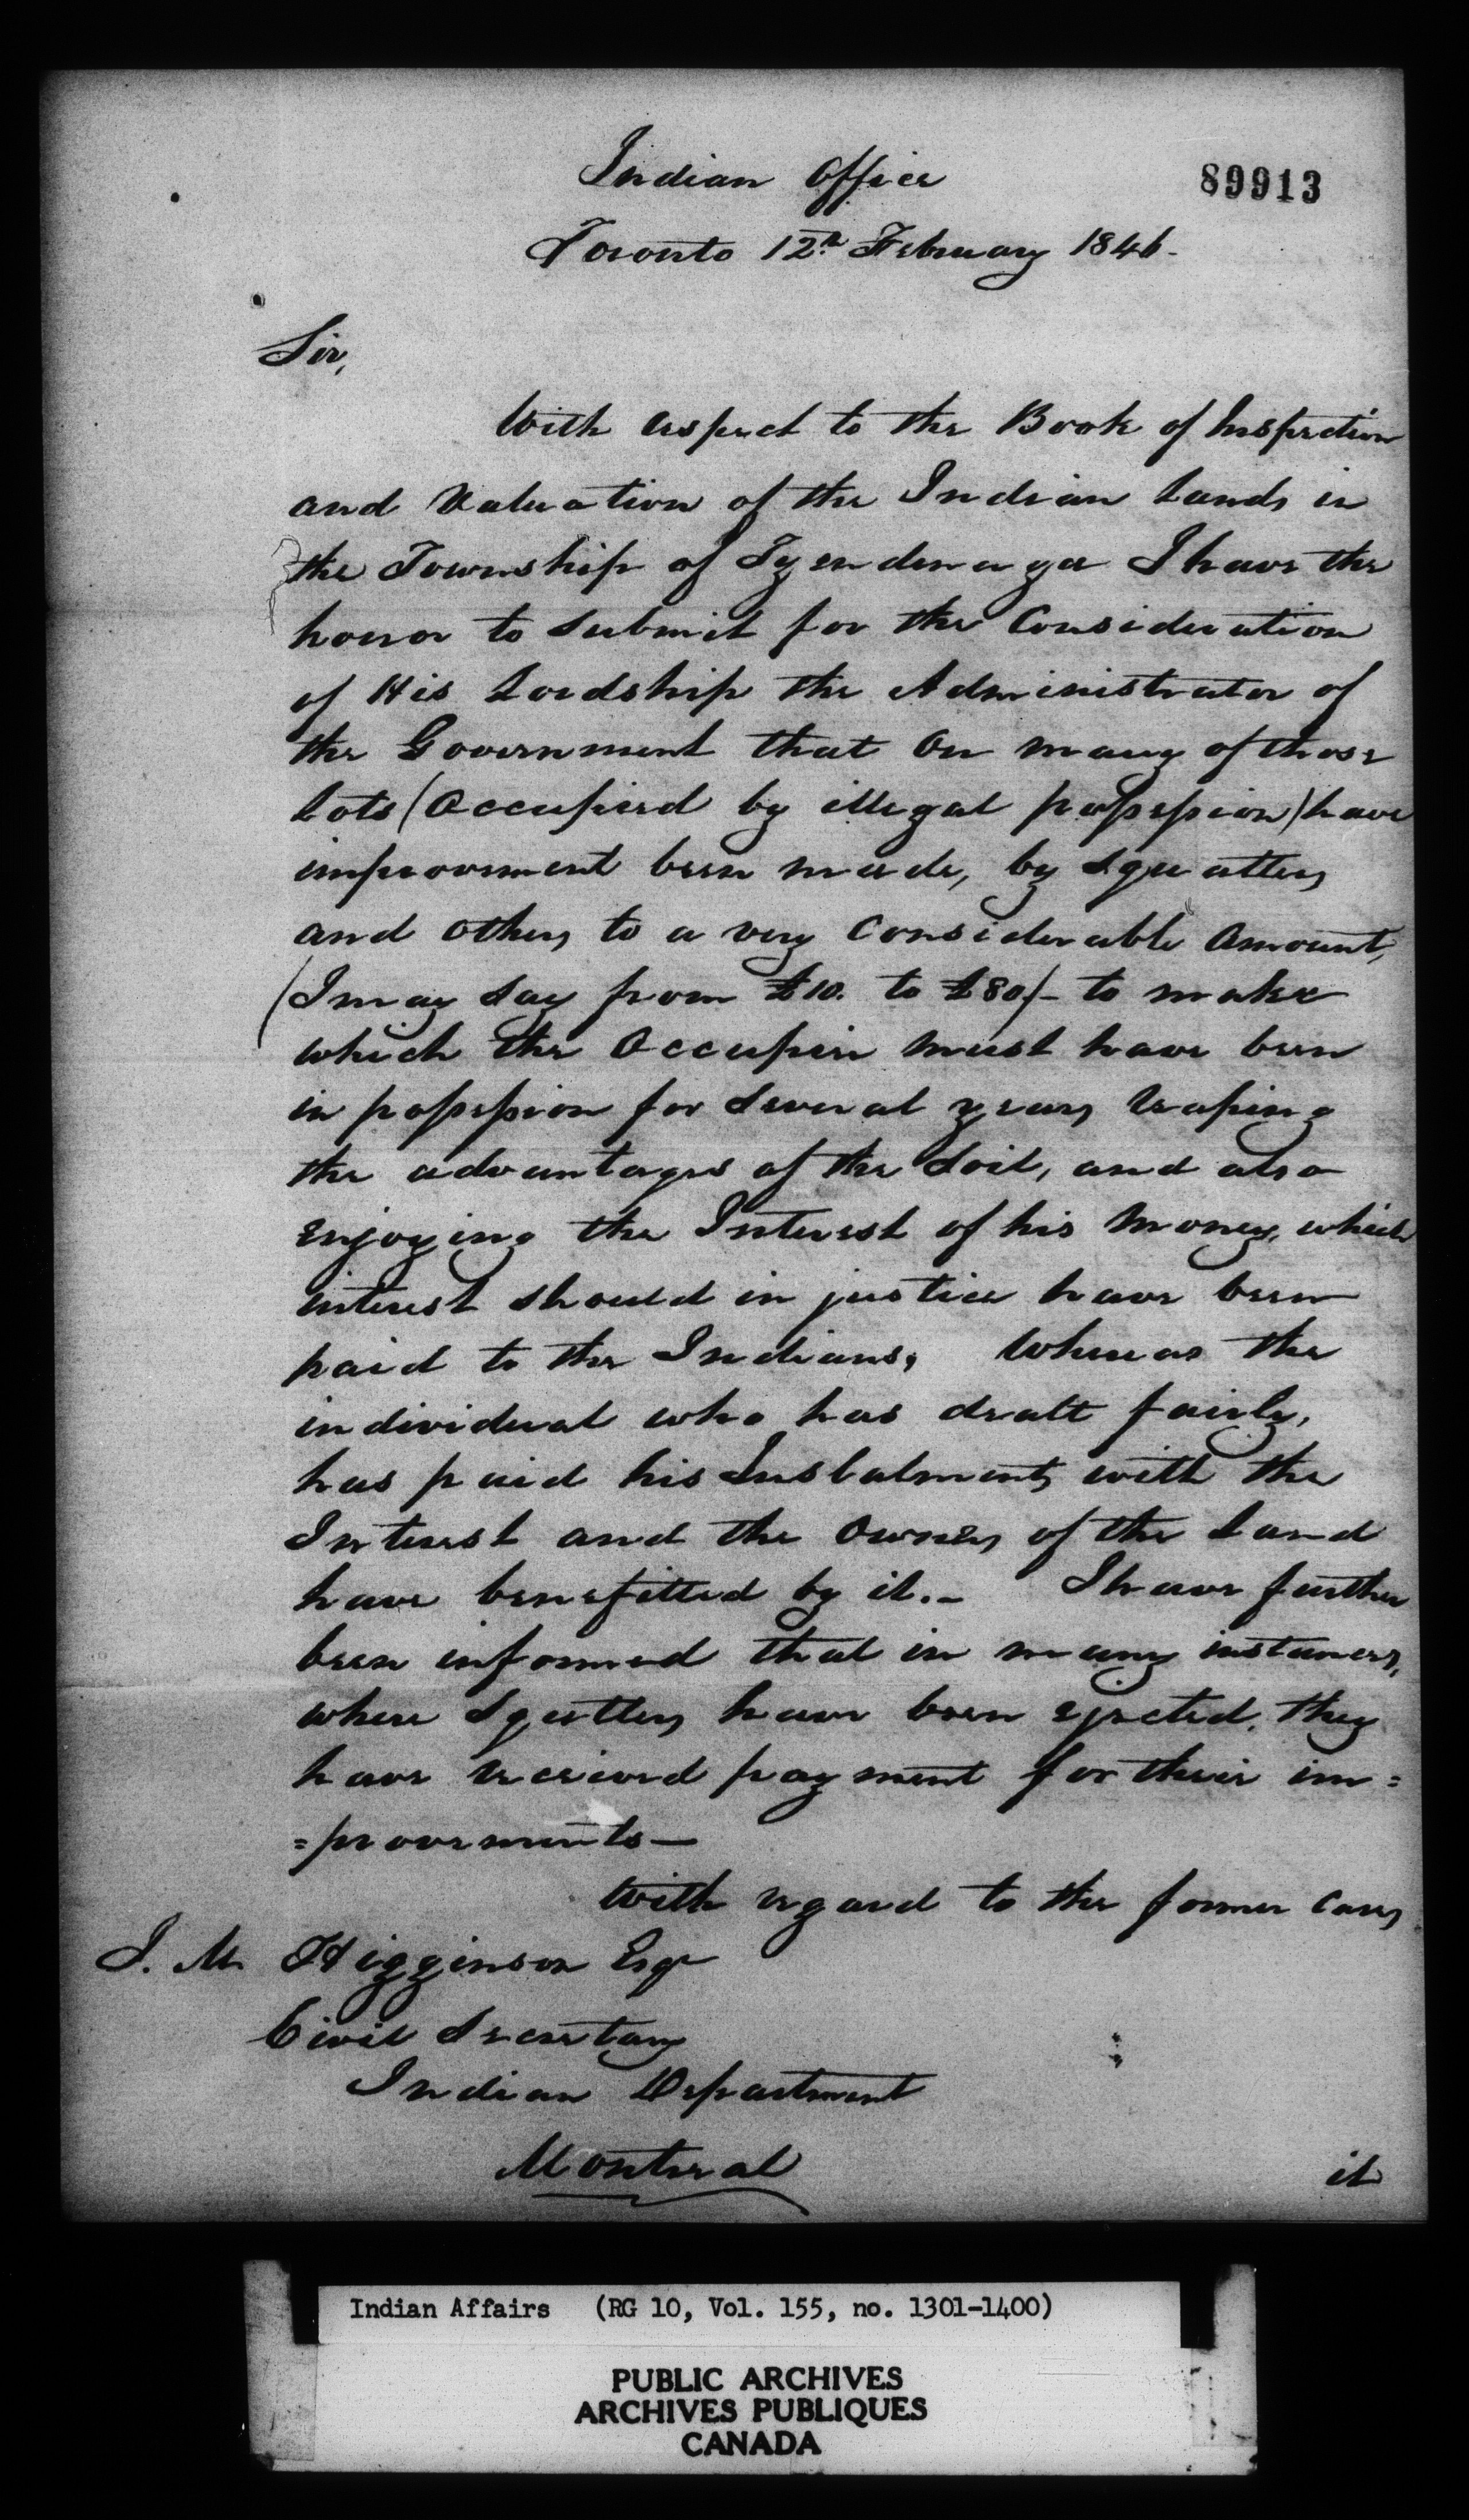 Indian Office
89913
Toronto 12th February 1846.
Sir,
With respect to the Book of Inspection
and Valuation of the Indian Lands in
the Township of Tyendenaga I have the
honor to submit for the Consideration
of His Lordship the Administrator of
the Government that on many of those
lots (Occupied by illegal possession) have
improvement been made, by Squatters
and others, to a very Considerable Amount,
(I may say from £10. to £80/- to make
which the Occupier must have been
in possession for several years reaping
the advantages of the Soil, and also
enjoying the Interest of his Money, which
interest should in justice have been
paid to the Indians, Whereas the
individual who has dealt fairly,
has paid his Instalments with the
Interest and the Owners of the Land
have benefitted by it.- I have further
been informed that in many instances,
where Squatters have been ejected, they
have received payment for their im=
=provements—
With regard to the former Cases
J. M. Higginson Esqr
Civil Secretary
Indian Department
Montreal
it
Indian Affairs (RG 10, Vol. 155, no. 1301-1400)
PUBLIC ARCHIVES
ARCHIVES PUBLIQUES
CANADA